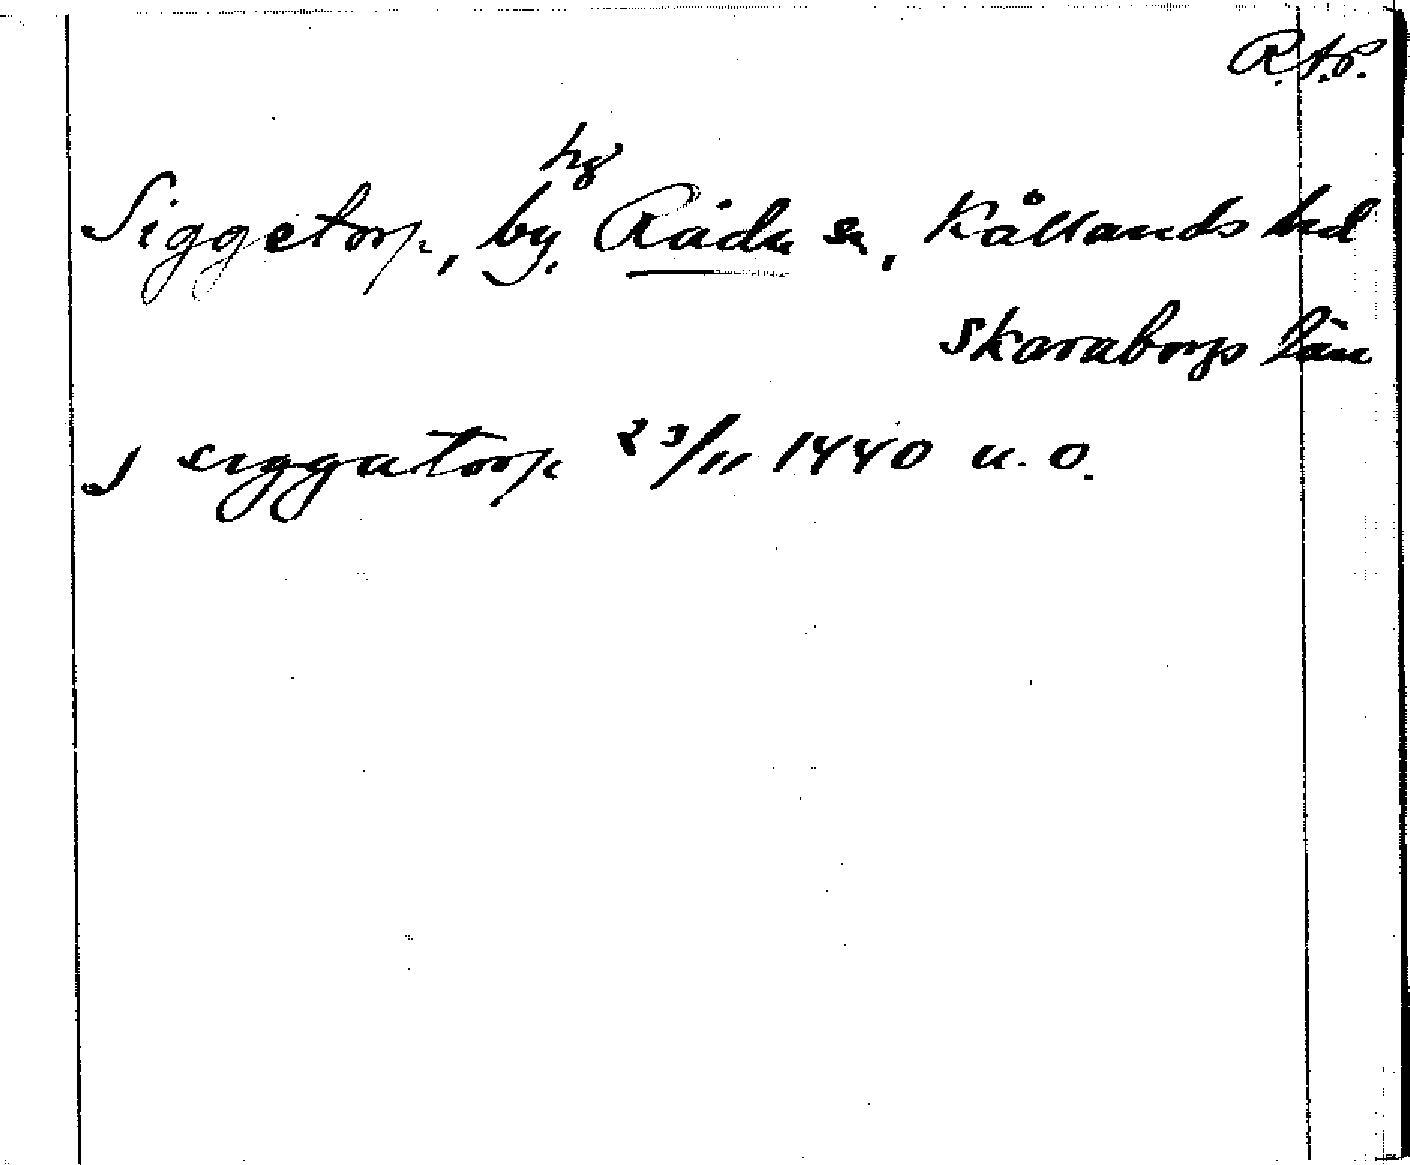 R.A.P.
hg
Siggetorp, by. Råda sn, Kållands hd
Skaraborgs län
J siggatorp 23/11 1440 u. o.